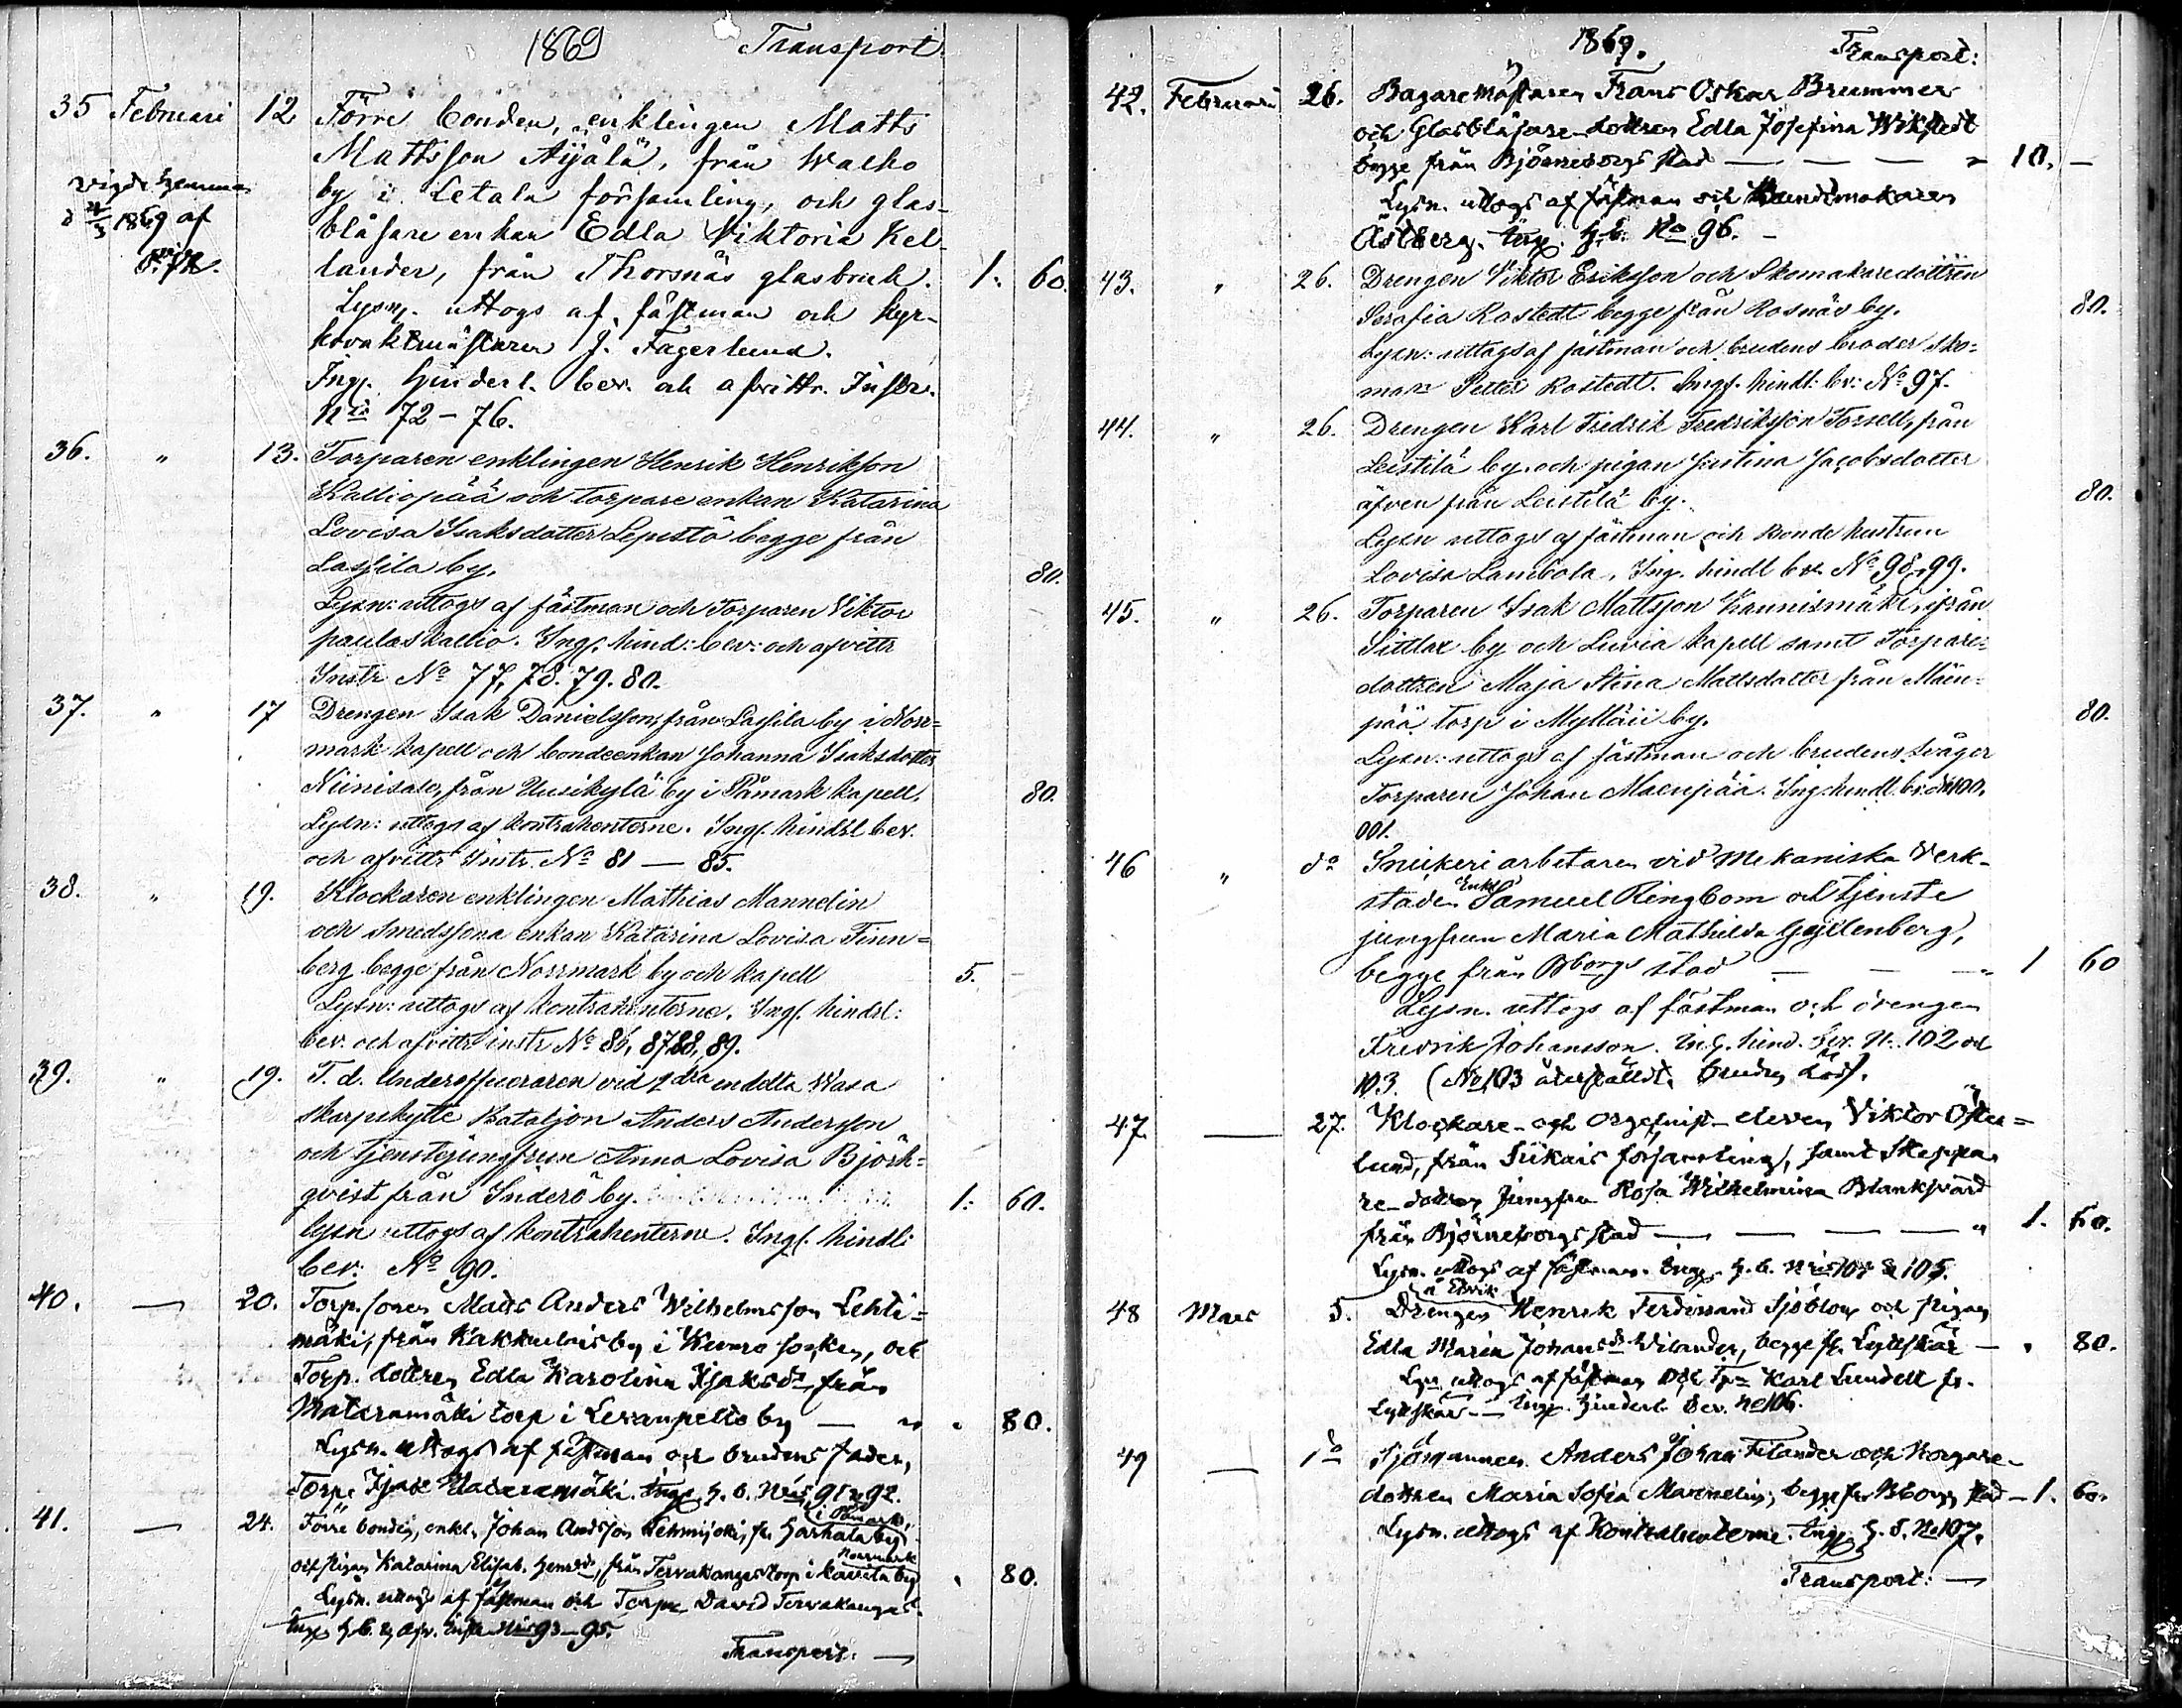 1869 Transport.
35 Februari 12 Förre bonden, enklingen Matts
Mattsson Äijälä, från Walko
by i Letala församling, och glas-
blåsare enkan Edla Viktoria Kel-
lander, från Thorsnäs glasbruk. 1. 60.
vigde hemma
d 29/3 1869 af
Lysn. uttogs af fästman och kyr-
kovaktmästaren J. Fagerlund.
Ingf. Hinderl. bev. och afvittr. Instr.
Nris 72 - 76.
36. " 13. Torparen enklingen Henrik Henriksson
Kalliopää och torpare enkan Katarina
Lovisa Isaksdotter Lepistö begge från
Lassila by. 80.
Lysn: uttogs af fästman och Torparen Viktor
paulaskallio. Ingf. hind: bev: och afvittr
Instr No 77, 78. 79. 80.
37. " 17 Drengen Isak Danielsson, från Lassila by i Norr=
mark kapell och bondeenkan Johanna Isaksdotter
Niinisalo, från Uusikylä by i Påmark kapell. 80.
Lysn: uttogs af kontrahenterne. Ingf. hindrl bev.
och afvittr instr. No 81 — 85.
38. " 19. Klockaren enklingen Mathias Mannelin
och smedssona enkan Katarina Lovisa Finn=
berg begge från Norrmark by och kapell 5. -
Lysn: uttogs af kontrahenterne. Ingf. hindrl:
bev. och afvittr instr No 86, 87 88, 89.
39. " 19. T. d. Underofficeraren vid 2dra indelta Wasa
skarpskytte Bataljon Anders Andersson
och tjenstejungfrun Anna Lovisa Björk=
qvist från Inderö by. 1: 60.
lysn uttogs af kontrahenterne. Ingf. hindl:
bev: No 90.
40. — 20. Torp. sonen Mats Anders Wilhelmsson Lehti=
mäki, från Kakkulais by i Kiumo socken, och
Torp. dottren Edla Karolina Isaksdr från
Wataramäki torp i Levanpelto by — " " 80.
Lysn. uttogs af fästman och brudens fader,
Torp. Isak Wataramäki. Ingf. h. b. Nris 91 & 92.
41. — 24. Förre bonden, enkl. Johan Andsson Lehmijoki, fr. Harhala by
i Påmark,
och pigan Katarina Elisab. Henrdr, från Tervakangas torp i Lavila by " 80.
Norrmark
Lysn. uttogs af fästman och Torpn David Tervakangas.
Ingf. h. b. & afv. Instr. Nris 93 - 95.
Transport. —
1869. Transport:
42. Februari 26. Bagaremästaren Frans Oskar Brummer
och Glasblåsare-dottren Edla Josefina Wikstedt
begge från Björneborgs stad — — — " 10. —
Lysn. uttogs af fästman och Bundtmakaren
Åstberg. Ingf. h. b. No 96. -
43. " 26. Drengen Viktor Eriksson och Skomakaredottren
Serafia Rostedt begge från Rosnäs by. 80.
Lysn: uttogs af fästman och brudens broder sko=
man Petter Rostedt. Ingf. hindl: bv: No 97.
44. " 26. Drengen Karl Fredrik Fredriksson Forsell, från
Leistilä by och pigan Justina Jacobsdotter
äfven från Leistilä by. 80.
Lysn uttogs af fästman och Bonde hustrun
Lovisa Lambola. Ing. hindl bev. No 98, 99.
45. " 26. Torparen Isak Mattsson Kaunismäki, ifrån
Sittlax by och Luvia kapell samt Torpare=
dottren Maja Stina Mattsdotter från Mäen=
pää torp i Mylläii by. 80.
Lysn: uttogs af fästman och brudens svåger
Torparen Johan Maenpää. Ing. hindl. bv: No 100.
001.
46 " do Snickeri arbetaren vid Mekaniska Verk-
staden Enkl. Samuel Ringbom och tjenste
jungfrun Maria Mathilda Gyllenberg,
begge från Bborgs stad — — — " 1 60
Lysn. uttogs af fästman och drengen
Fredrik Johansson. Ing. hind. bev. N. 102 och
103. (No 103 återställdt, bruden död).
47. — 27. Klockare- och orgelnist-eleven Viktor Öster=
lund, från Siikais församling, samt Skeppa
re-dottren Jungfru Rosa Wilhelmina Blanksvärd
från Björneborgs stad — — — " 1. 60.
Lysn. uttogs af fästman. Ingf. h. b. Nris 104 & 105.
48 Mars 5. Drengen Henrik Ferdinand Sjöblom och pigan
Edla Maria Johansdr Wilander, begge fr. Lyttskär — " 80.
Lysn uttogs af fästman och Tpn Karl Lundell fr.
Lyttskär. — Ingf. Hinderl. bev. No 106.
49 — do Sjömannen Anders Johan Filander och Borgare-
dottren Maria Sofia Mannelin, begge fr. Bborgs stad — 1. 60.
Lysn. uttogs af Kontrahenterne. Ingf. h. b. No 107.
Transport: —